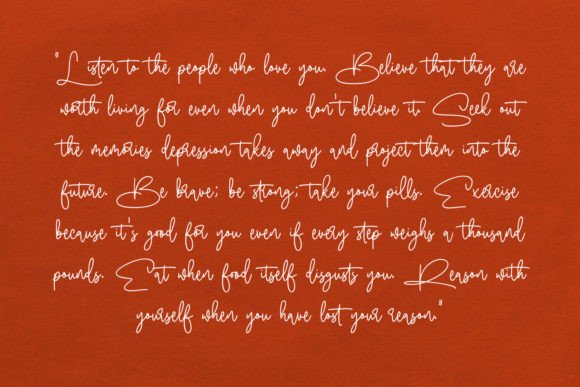 "Listen to the people who love you. Believe that they are
worth living for even when you don't believe it. Seek out
the memories depression takes away and project them into the
future. Be brave; be strong; take your pills. Exercise
because it's good for you even if every step weighs a thousand
pounds. Eat when food itself disgusts you. Reason with
yourself when you have lost your reason."